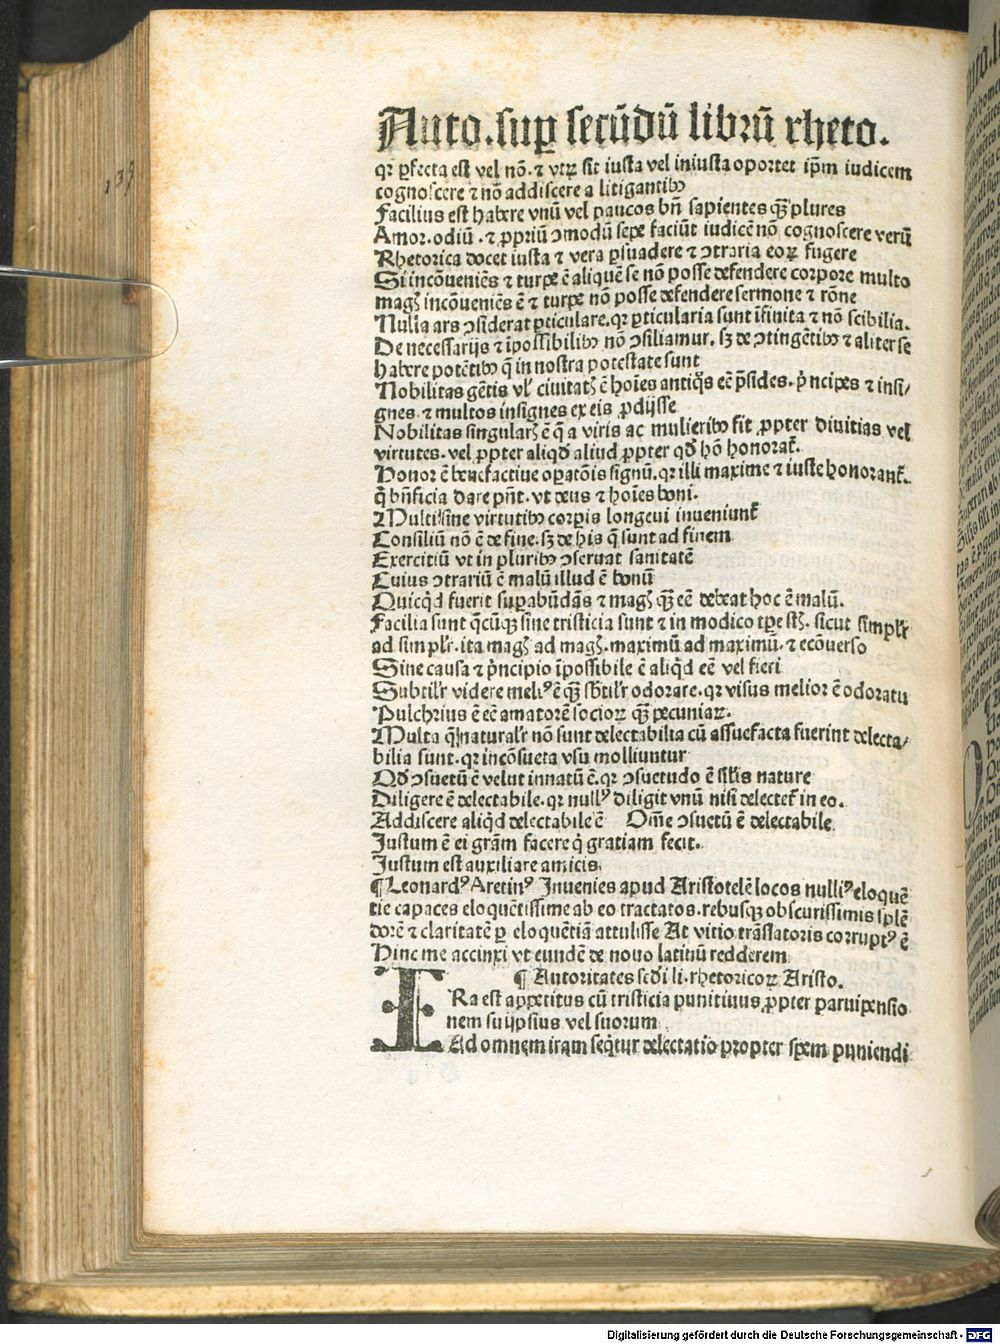 Auto.suꝑ secūdū librū rheto.
139
qꝛ ꝑfecta est vel nō. ⁊ vtꝝ sit iusta vel iniusta oportet ip̄m iudicem
cognoscere ⁊ nō addiscere a litigantibꝰ
Facilius est habere vnū vel paucos bn̄ sapientes qꝫ plures
Amor. odiū. ⁊ ꝓpriū ↄmodū sepe faciūt iudicē nō cognoscere verū
Rhetorica docet iusta ⁊ vera ꝑsuadere ⁊ ↄtraria eoꝝ fugere
Si incōueniēs ⁊ turpe ē aliquē se nō posse defendere corpore multo
magꝭ incōueniēs ē ⁊ turpe nō posse defendere sermone ⁊ rōne
Nulla ars ↄsiderat ꝑticulare. qꝛ ꝑticularia sunt īfinita ⁊ nō scibilia.
De necessarijs ⁊ īpossibilibꝰ nō ↄsiliamur. sꝫ de ↄtingētibꝰ ⁊ aliter se
habere potētibꝰ q̄ in nostra potestate sunt
Nobilitas gētis vl' ciuitatꝭ ē hoīes antiqͦs eē p̄sides. pͥncipes ⁊ insi/
gnes. ⁊ multos insignes ex eis ꝓdijsse
Nobilitas singularꝭ ē q̄ a viris ac mulieribꝰ fit ꝓpter diuitias vel
virtutes. vel ꝓpter aliqd̓ aliud ꝓpter qd̓ hō honorat̄.
Honor ē benefactiue oꝑatōis signū. qꝛ illi maxime ⁊ iuste honorant̄.
q̄ bn̄ficia dare pn̄t. vt deus ⁊ hoīes boni.
Multi sine virtutibꝰ corꝑis longeui inueniunt̄
Consiliū nō ē de fine. sꝫ de his q̄ sunt ad finem
Exercitiū vt in pluribꝰ ↄseruat sanitatē
Cuius ↄtrariū ē malū illud ē bonū
Quicqͥd fuerit suꝑabūdās ⁊ magꝭ qꝫ eē debeat hoc ē malū.
Facilia sunt q̄cūqꝫ sine tristicia sunt ⁊ in modico tꝑe stꝭ. sicut simplr̄
ad simplr̄. ita magꝭ ad magꝭ. maximū ad maximū. ⁊ ecōuerso
Sine causa ⁊ pͥncipio īpossibile ē aliqͥd eē vel fieri
Subtilr̄ videre meliꝰ ē qꝫ sbtilr̄ odorare. qꝛ visus melior ē odoratu
Pulchrius ē eē amatorē socioꝝ qꝫ pecuniaꝝ.
Multa q̄ naturalr̄ nō sunt delectabilia cū assuefacta fuerint delecta/
bilia sunt. qꝛ incōsueta vsu molliuntur
Qd̓ ↄsuetū ē velut innatū ē. qꝛ ↄsuetudo ē sil̓is nature
Diligere ē delectabile. qꝛ nullꝰ diligit vnū nisi delectet̄ in eo.
Addiscere aliqͥd delectabile ē Om̄e ↄsuetū ē delectabile.
Justum ē ei gr̄am facere qͥ gratiam fecit.
Justum est auxiliare amicis.
¶ Leonardꝰ Aretinꝰ Inuenies apud Aristotelē locos nulliꝰ eloquē
tie capaces eloquētissime ab eo tractatos. rebusqꝫ obscurissimis splē
dorē ⁊ claritatē ꝑ eloquētiā attulisse At vitio trāslatoris corruptꝰ ē
Hinc me accinxi vt eundē de nouo latinū redderem
¶ Autoritates scd̓i li. rhetoricoꝝ Aristo.
IRa est appetitus cū tristicia punitiuus ꝓpter paruipensio
nem sui ipsius vel suorum
Ad omnem iram seqͥtur delectatio propter spem puniendi
Digitalisierung gefördert durch die Deutsche Forschungsgemeinschaft - DFG